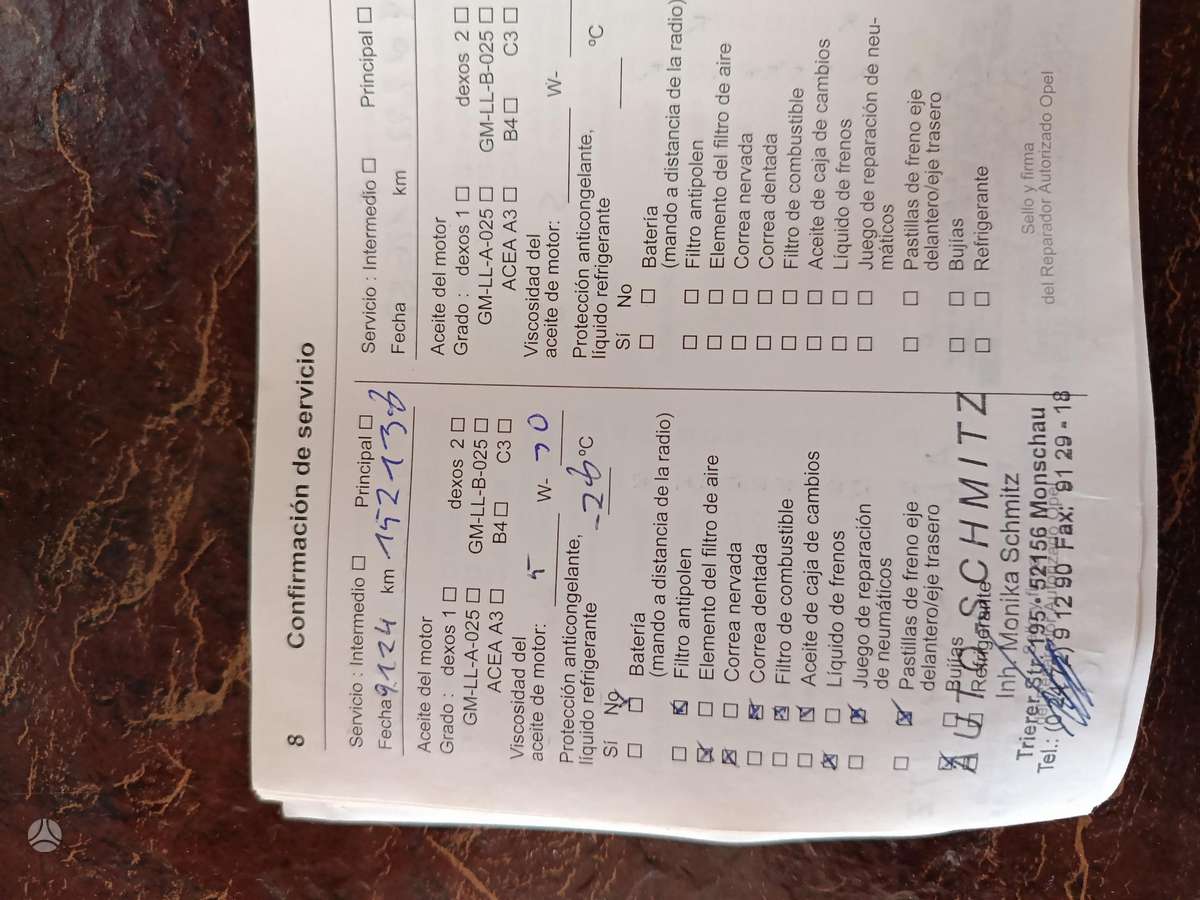 8 Confirmación de servicio
Servicio : Intermedio ☐ Principal ☐
Fecha 9.1.24 km 152138
Aceite del motor
Grado : dexos 1 ☐ dexos 2 ☐
GM-LL-A-025 ☐ GM-LL-B-025 ☐
ACEA A3 ☐ B4 ☐ C3 ☐
Viscosidad del
aceite de motor: 5 W- 30
Protección anticongelante,
líquido refrigerante -26 ºC
Sí No
☐ ☒ Batería
(mando a distancia de la radio)
☐ ☒ Filtro antipolen
☒ ☐ Elemento del filtro de aire
☒ ☐ Correa nervada
☐ ☒ Correa dentada
☐ ☒ Filtro de combustible
☐ ☒ Aceite de caja de cambios
☒ ☐ Líquido de frenos
☐ ☒ Juego de reparación
de neumáticos
☐ ☒ Pastillas de freno eje
delantero/eje trasero
☒ ☐ Bujías
Refrigerante
AUTO-SCHMITZ
Inh. Monika Schmitz
Trierer Str. 195 • 52156 Monschau
9 12 90 Fax: 91 29 - 18
Servicio : Intermedio ☐ Principal ☐
Fecha km
Aceite del motor
Grado : dexos 1 ☐ dexos 2 ☐
GM-LL-A-025 ☐ GM-LL-B-025 ☐
ACEA A3 ☐ B4 ☐ C3 ☐
Viscosidad del
aceite de motor: W-
Protección anticongelante,
líquido refrigerante ºC
Sí No
☐ ☐ Batería
(mando a distancia de la radio)
☐ ☐ Filtro antipolen
☐ ☐ Elemento del filtro de aire
☐ ☐ Correa nervada
☐ ☐ Correa dentada
☐ ☐ Filtro de combustible
☐ ☐ Aceite de caja de cambios
☐ ☐ Líquido de frenos
☐ ☐ Juego de reparación de neu-
máticos
☐ ☐ Pastillas de freno eje
delantero/eje trasero
☐ ☐ Bujías
☐ ☐ Refrigerante
Sello y firma
del Reparador Autorizado Opel